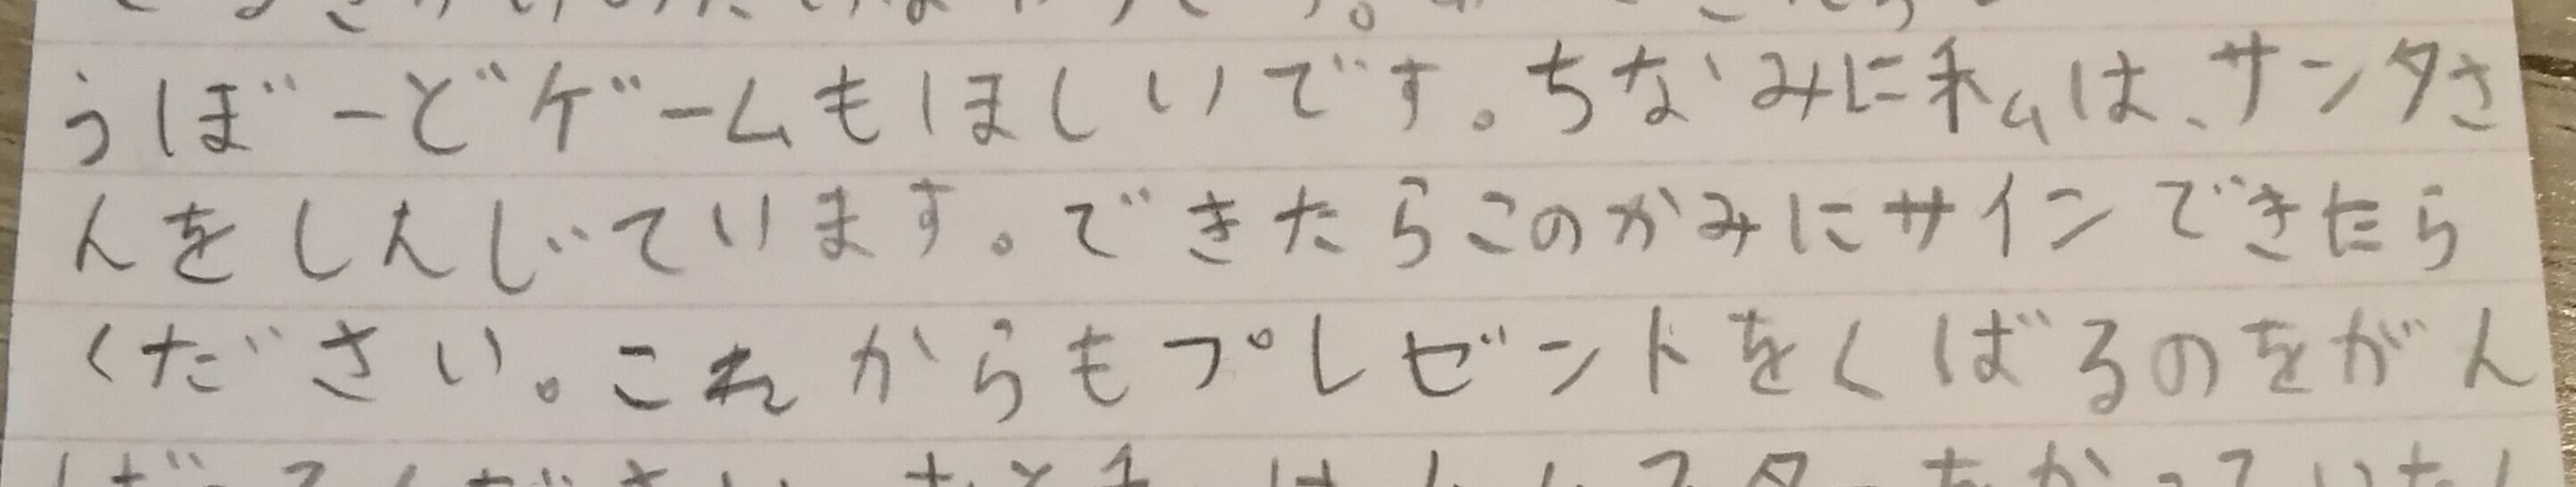 うぼーどゲームもほしいです。ちなみに私は、サンタさ
んをしんじています。できたらこのかみにサインできたら
ください。これからもプレゼントをくばるのをがん